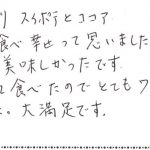 り スイポテとココア
食べ 幸せって思いました
美味しかったです。
て食べたのでとてもワ
た。大満足です。